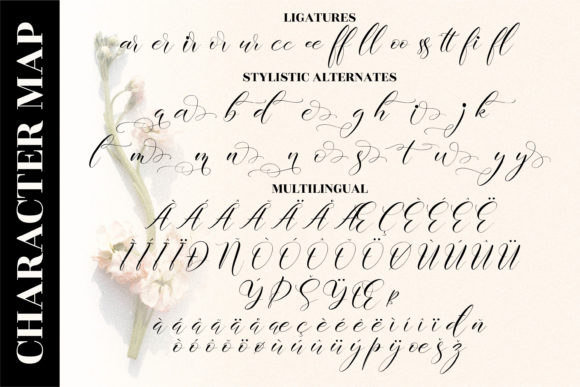 CHARACTER MAP
LIGATURES
ar er ir or ur cc ee ff ll oo ss tt fi fl
STYLISTIC ALTERNATES
q a b d e g h i j k
l m n o s t w y y
MULTILINGUAL
À Á Â Ã Ä Å Æ Ç È É Ê Ë
Ì Í Î Ï Ð Ñ Ò Ó Ô Õ Ö Ø Ù Ú Û Ü
Ý Þ Š Ÿ Œ
à á â ã ä å æ ç è é ê ë ì í î ï ñ
ò ó ô õ ö ø ù ú û ü ý þ ÿ œ š ž